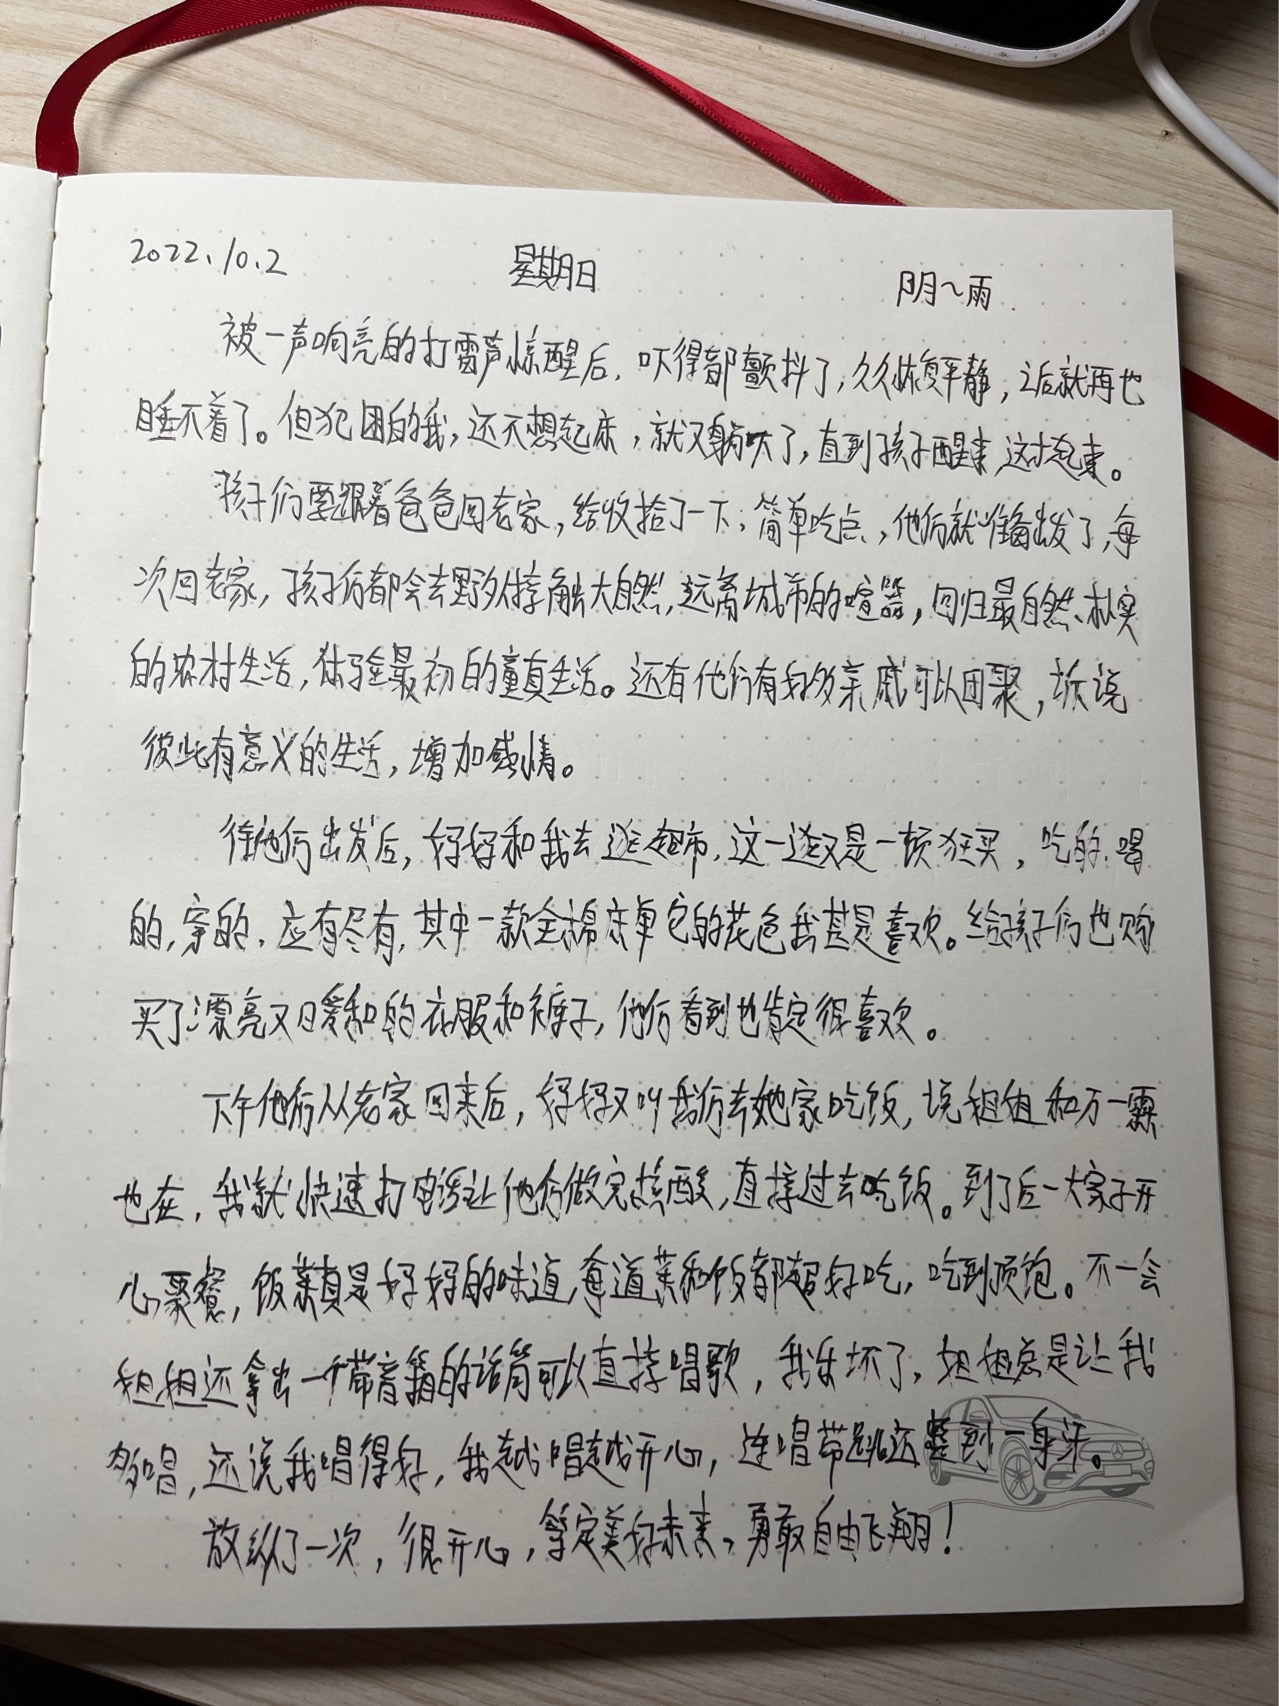 2022.10.2 星期日 阴~雨
被一声响亮的打雷声惊醒后,吓得都颤抖了,久久恢复平静,之后就再也
睡不着了。但犯困的我,还不想起床,就又躺下了,直到孩子醒来,这才起来。
孩子们要跟着爸爸回老家,给收拾了一下,简单吃点,他们就准备出发了,每
次回老家,孩子们都会去野外接触大自然,远离城市的喧嚣,回归最自然、朴实
的农村生活,体验最初的童真生活。还有他们有好多亲戚可以团聚,诉说
彼此有意义的生活,增加感情。
待他们出发后,好好和我去逛超市,这一逛又是一顿狂买,吃的,喝
的,穿的,应有尽有,其中一款全棉床单它的花色我甚是喜欢。给孩子们也购
买了漂亮又暖和的衣服和裤子,他们看到也肯定很喜欢。
下午他们从老家回来后,好好又叫我们去她家吃饭,说姐姐和万一霖
也在,我就快速打电话让他们做完核酸,直接过去吃饭。到了后一大家子开
心聚餐,饭菜真是好好的味道,每道菜和饭都超好吃,吃到顶饱。不一会
姐姐还拿出一个带音箱的话筒可以直接唱歌,我乐坏了,姐姐总是让我
多唱,还说我唱得好,我越唱越开心,连唱带跳还整到一身汗。
放纵了一次,很开心,笃定美好未来,勇敢自由飞翔!